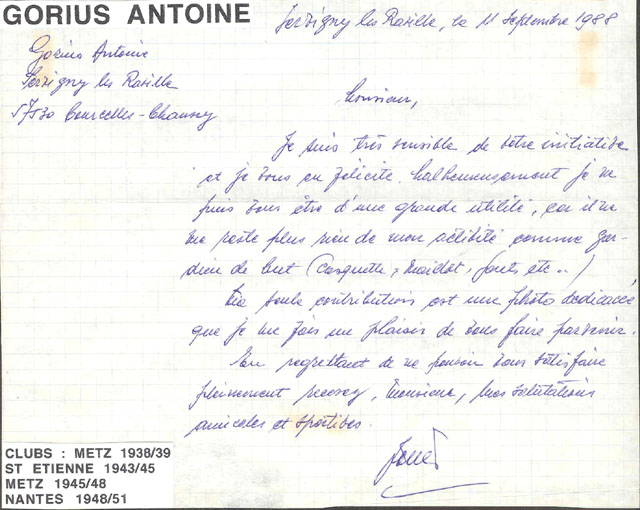 GORIUS ANTOINE
Servigny les Raville, le 11 Septembre 1988
Gorius Antoine
Servigny les Raville
57530 Courcelles-Chaussy
Monsieur,
Je suis très sensible de votre initiative
et je vous en félicite. Malheureusement je ne
puis vous être d'une grande utilité, car il ne
me reste plus rien de mon activité comme gar-
dien de but (Casquette, maillot, gants, etc..)
Ma seule contribution est une photo dédicacée,
que je me fais un plaisir de vous faire parvenir.
En regrettant de ne pouvoir vous satisfaire
pleinement recevez, Monsieur, mes salutations
amicales et sportives.
CLUBS : METZ 1938/39
ST ETIENNE 1943/45
METZ 1945/48
NANTES 1948/51